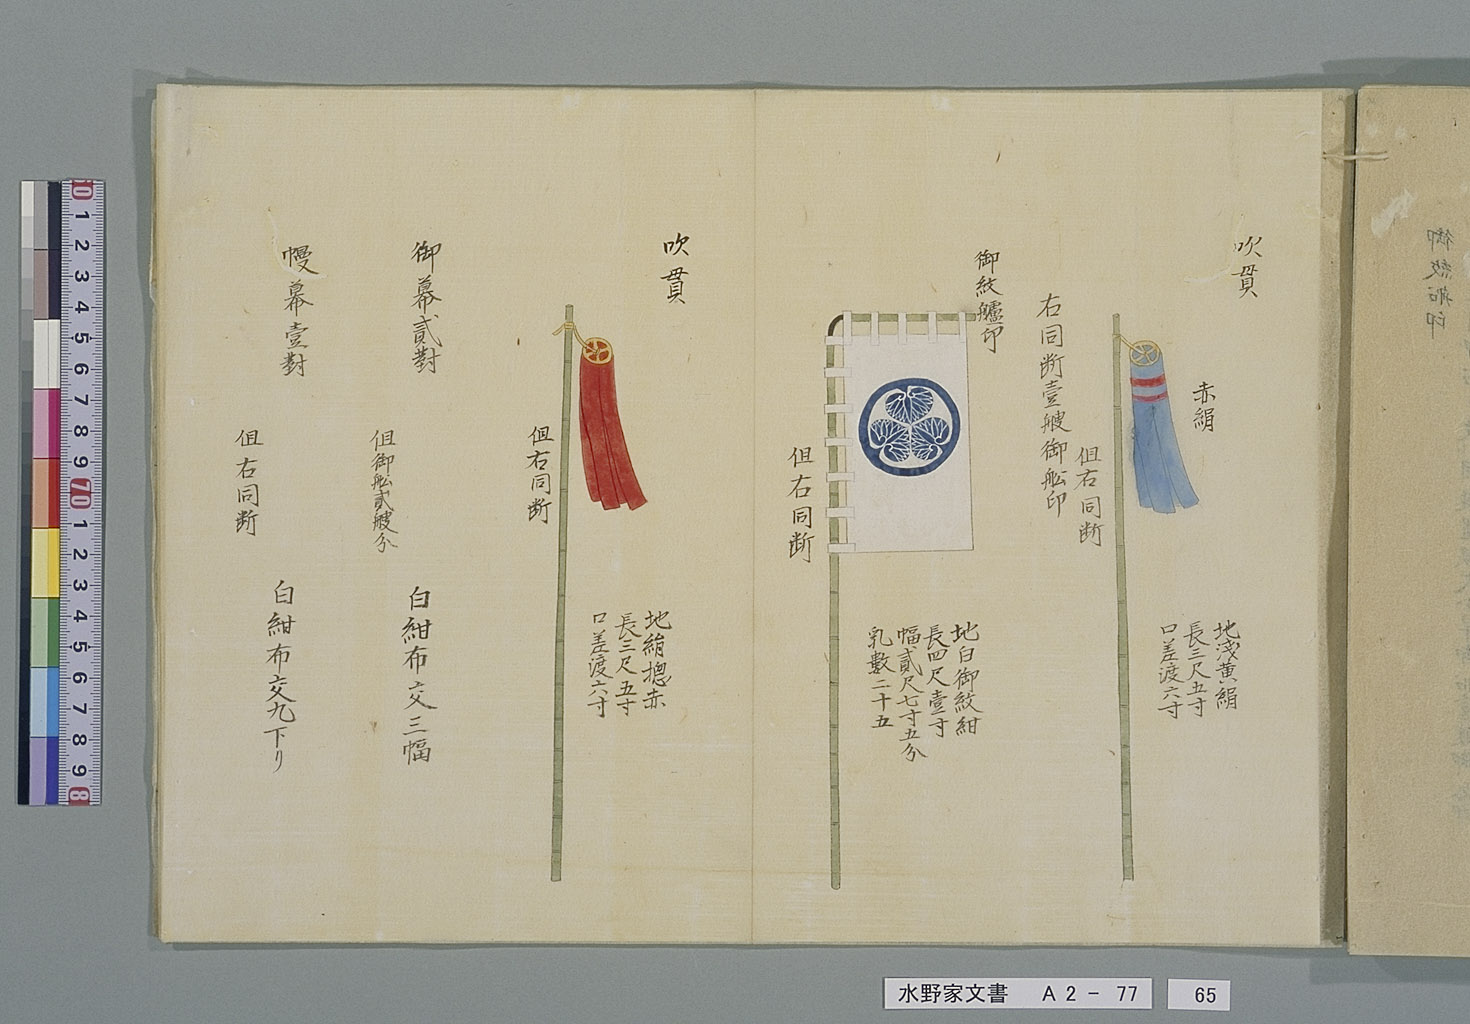 吹貫
赤絹
地浅黄絹
長三尺五寸
口差渡六寸
但右同断
右同断壹艘御舩印
御紋艫印
地白御紋紺
長四尺壹寸
幅貳尺七寸五分
乳數二十五
但右同断
吹貫
地絹摠赤
長三尺五寸
口差渡六寸
但右同断
御幕貳對
但御舩貳艘分
白紺布交三幅
幔幕壹對
但右同断
白紺布交九下り
御紋船印
0 1 2 3 4 5 6 7 8 9 70 1 2 3 4 5 6 7 8 9 8
水野家文書 A2-77
65